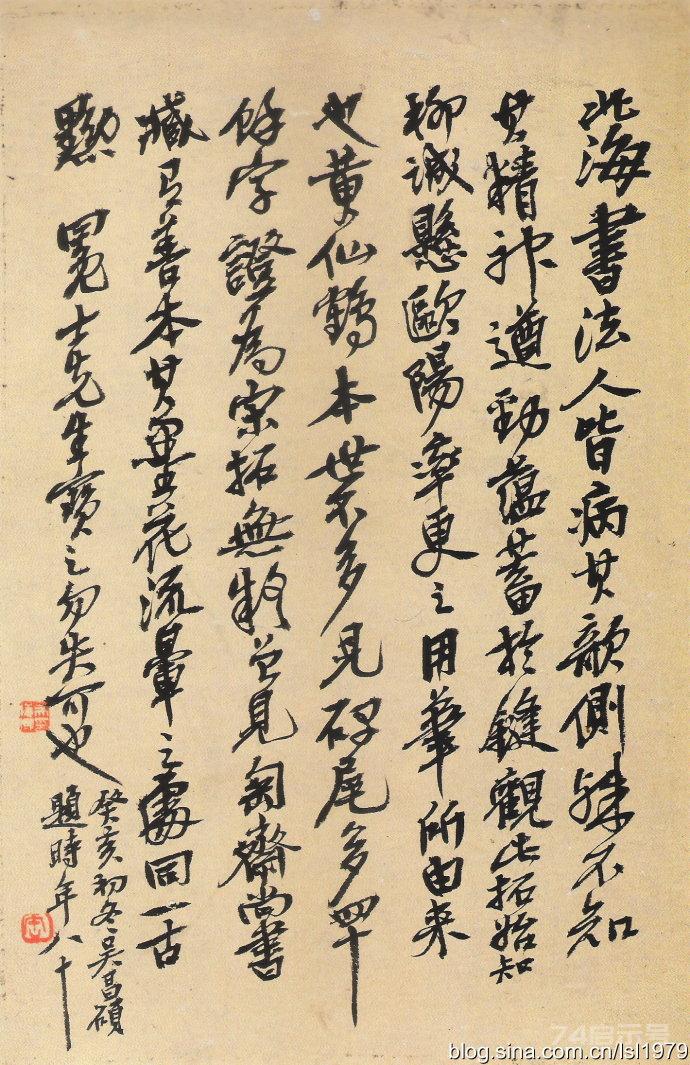 北海書法人皆病其欹側殊不知
其精神遒勁蘊蓄於鍵觀此拓始知
柳誠懸歐陽率更之用筆所由来
也黄仙鶴本世不多見碑尾多四十
餘字證為宋拓無疑曾見匋齋尚書
藏有善本其墨花流暈之處同一古
黝 冕士先生寶之勿失可也
癸亥初冬吴昌碩
題時年八十
blog.sina.com.cn/lsl1979